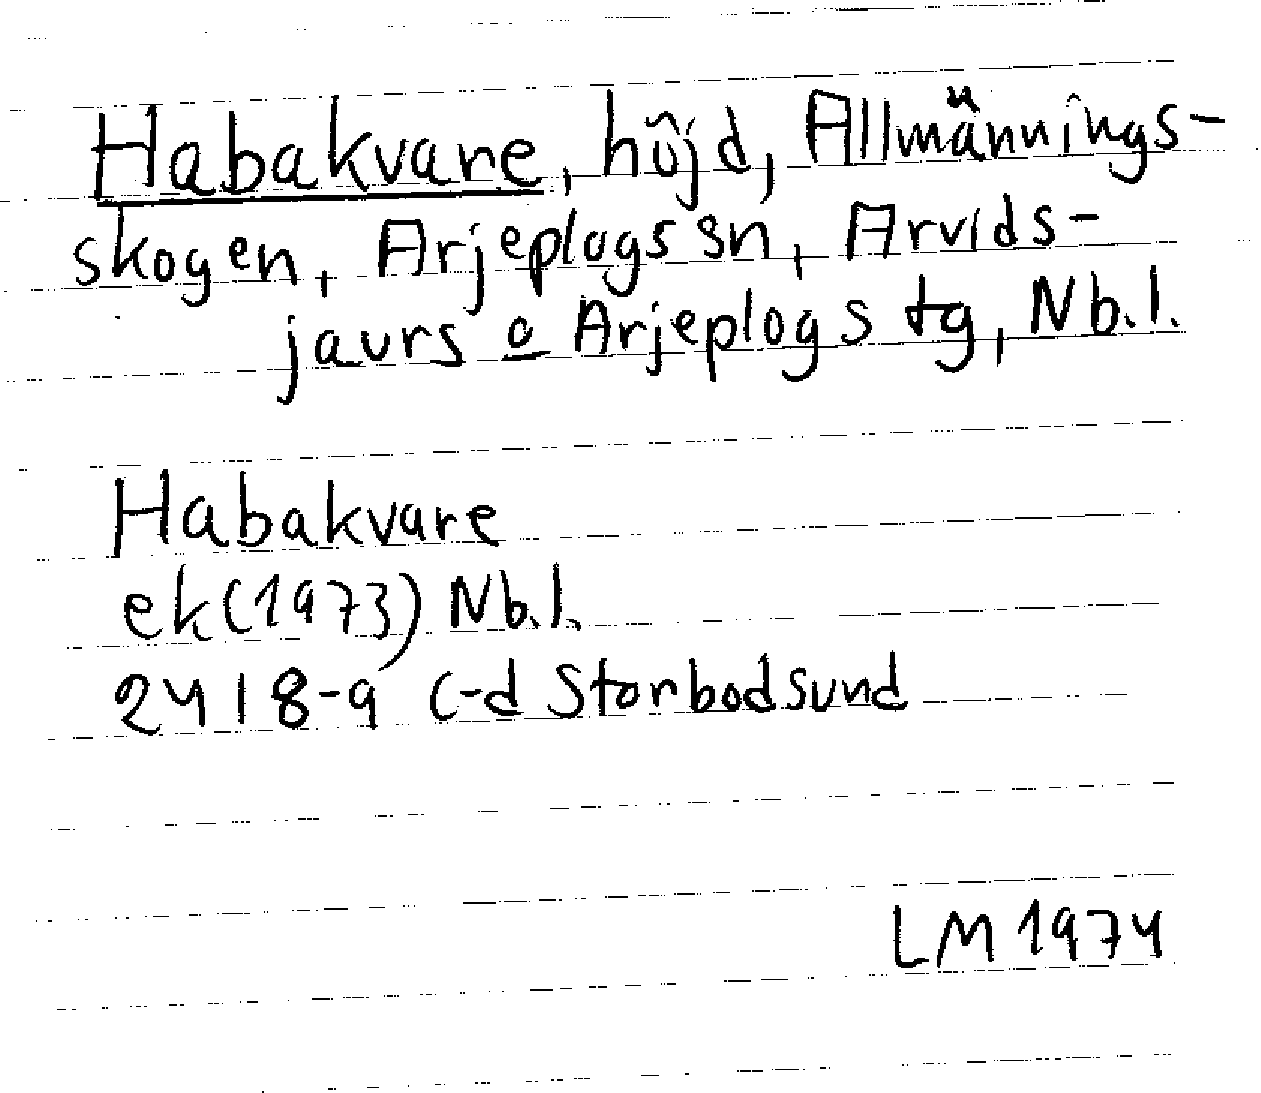 Habakvare, höjd, Allmännings-
skogen, Arjeplogs sn, Arvids-
jaurs o Arjeplogs tg, Nb.l.
Habakvare
ek (1973) Nb.l.
2418-9 c-d Storbodsund
LM 1974